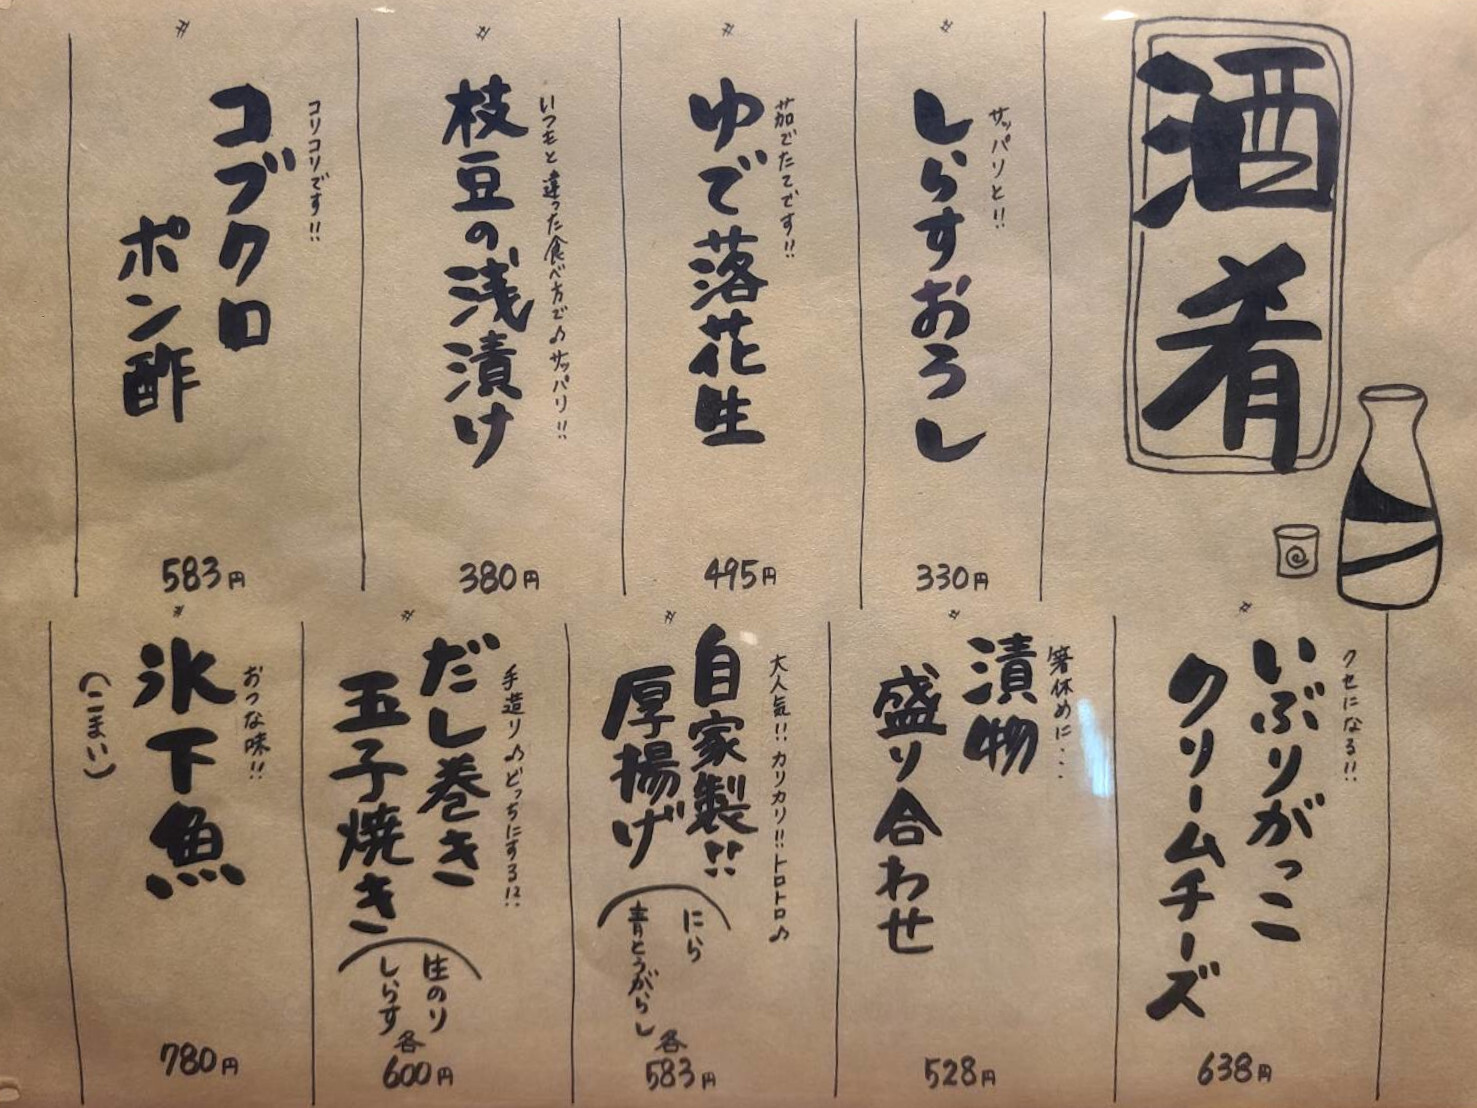 酒肴
サッパリと!!
しらすおろし
330円
茹でたてです!!
ゆで落花生
495円
いつもと違った食べ方で♪サッパリ!!
枝豆の浅漬け
380円
コリコリです!!
コブクロ
ポン酢
583円
クセになる!!
いぶりがっこ
クリームチーズ
638円
箸休めに・・・
漬物
盛り合わせ
528円
大人気!!カリカリ!!トロトロ♪
自家製!!
厚揚げ
にら
青とうがらし
各
583円
手造り♪どっちにする!?
だし巻き
玉子焼き
生のり
しらす
各
600円
おつな味!!
氷下魚
(こまい)
780円